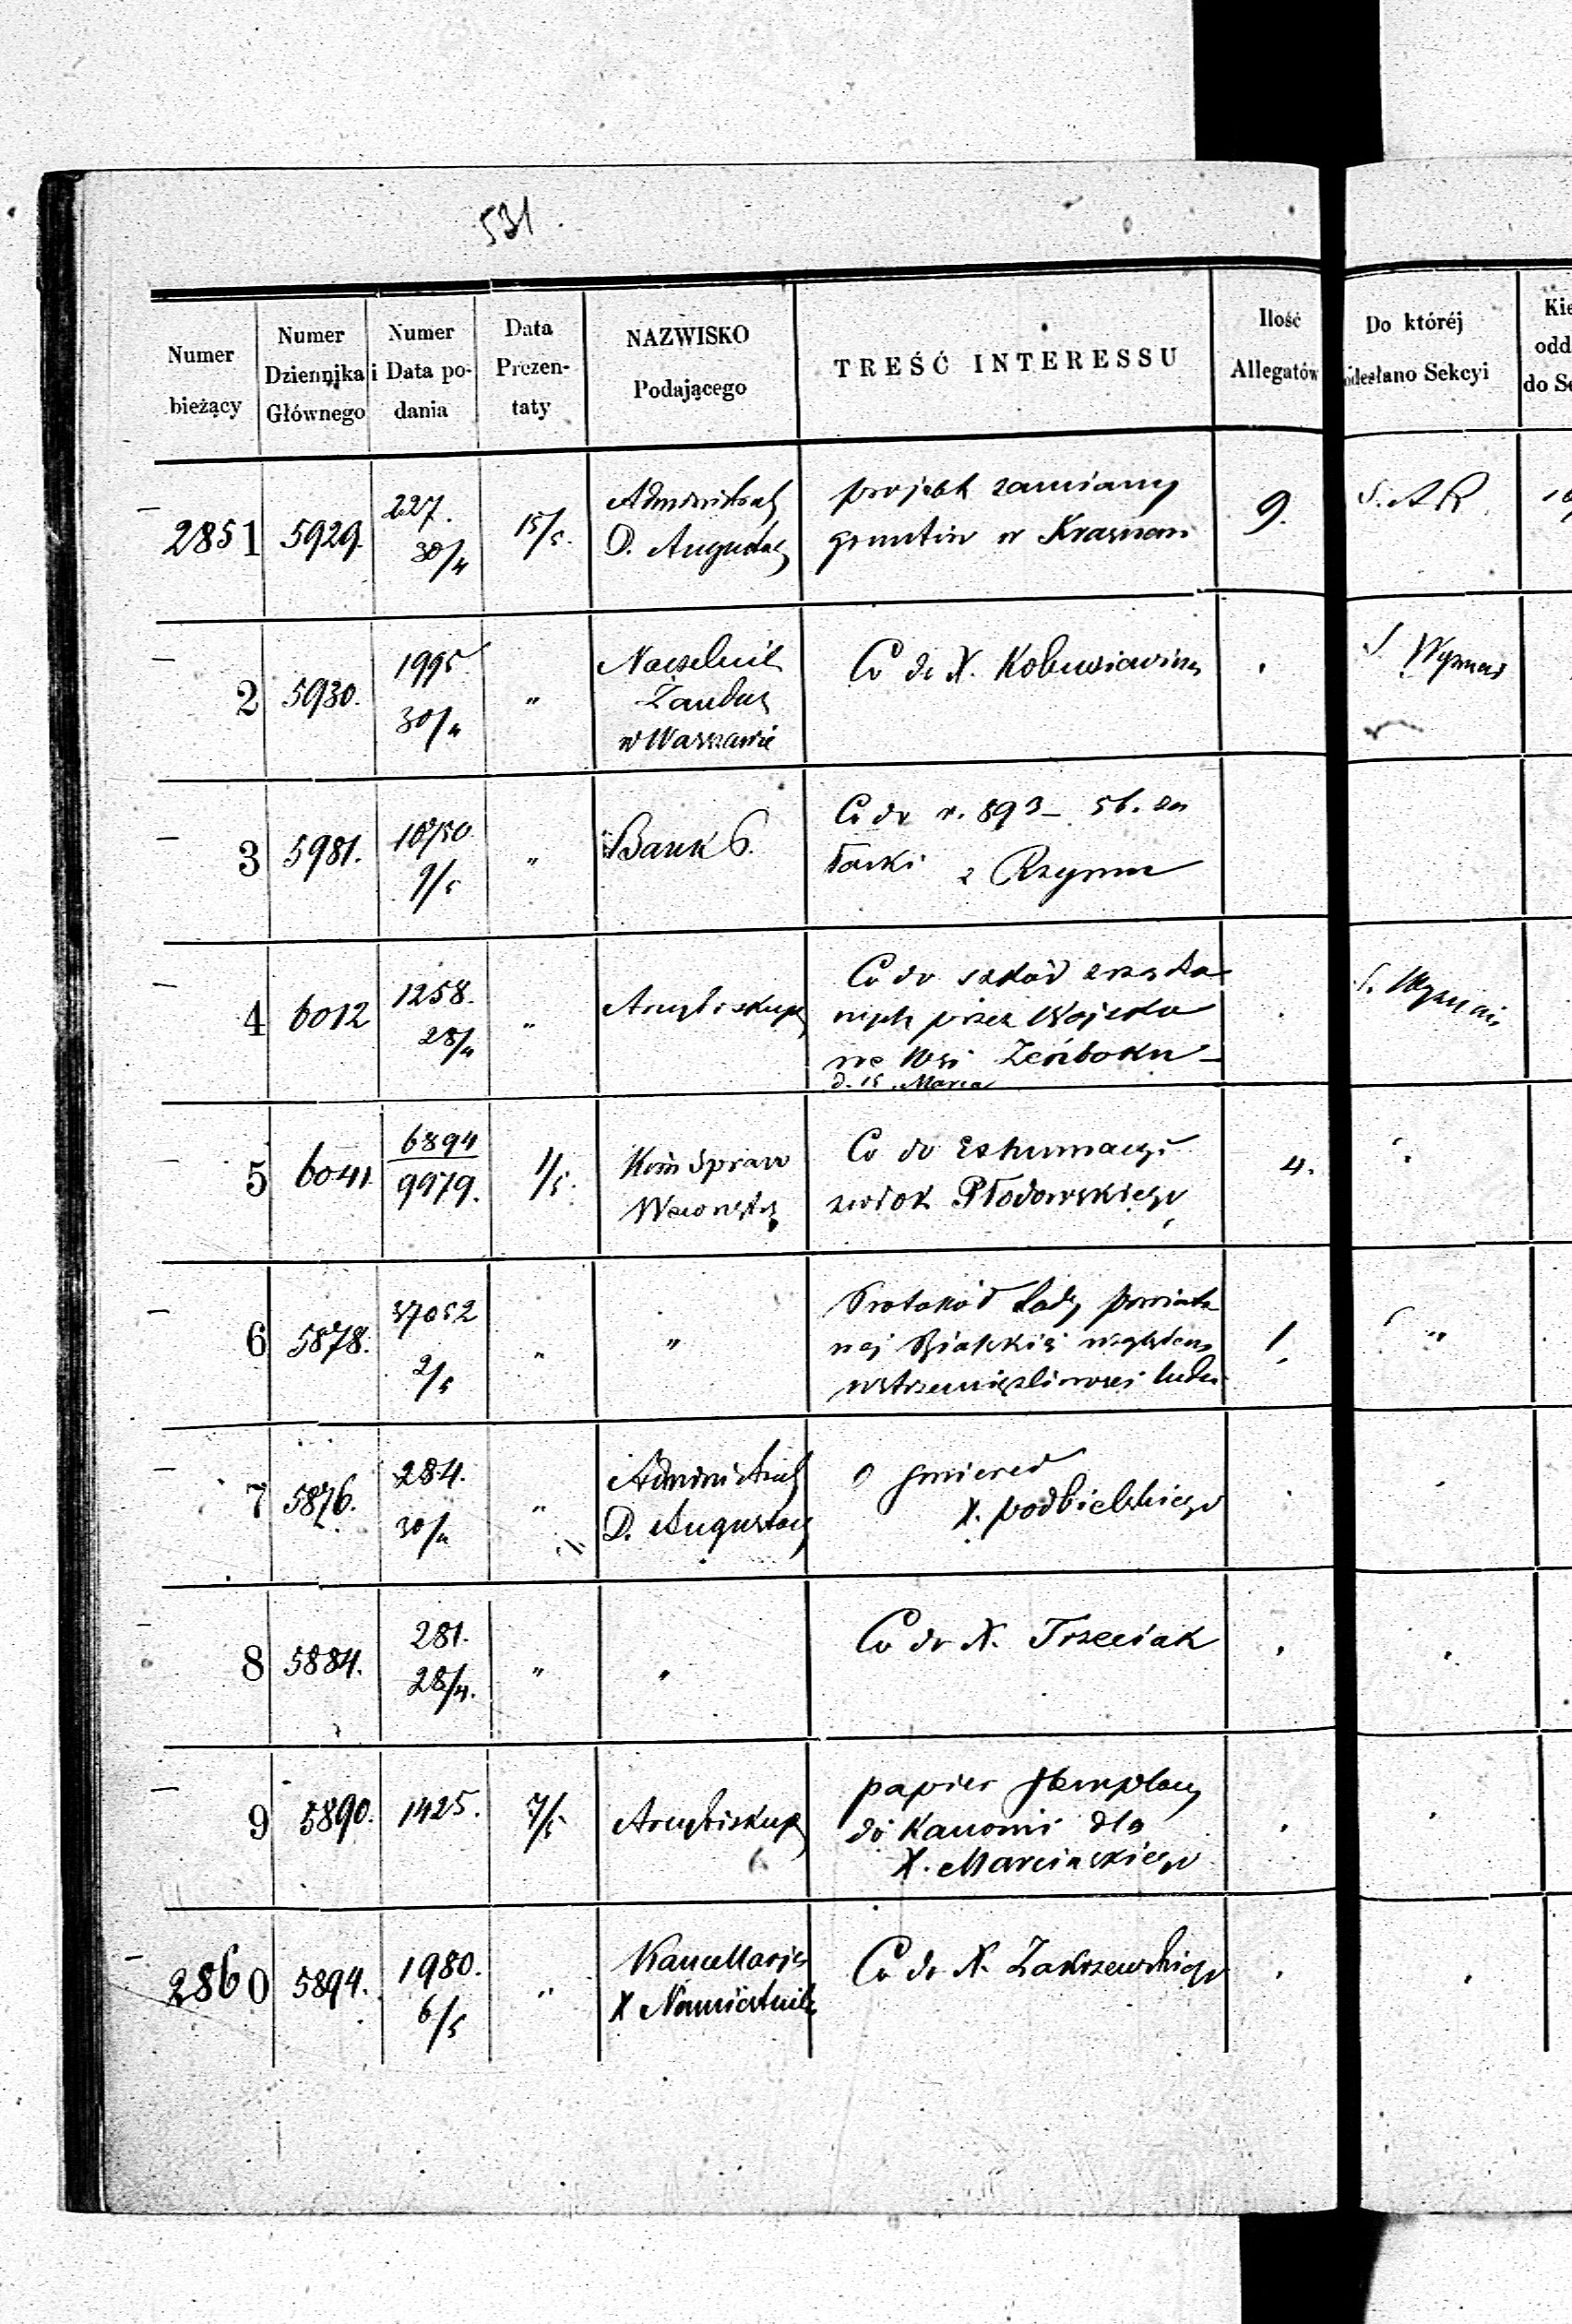 531.
Numer bieżący
Numer Dziennika Głównego
Numer i Data podania
Data Prezentaty
NAZWISKO Podającego
TREŚĆ INTERESSU
Ilość Allegatów
Do któréj odesłano Sekcyi
Kie
odd
do Se
2851 5929. 227. 30/4 15/5. Administrat projekt zamiany 9. S. A R.
D. August gruntów w
2 5930. 1995 30/4 " Naczelnik Co do X.
Żand
w Warszawie
3 5981. 10750 9/5 " Bank P. Co do r. 893 – 56. za
z Rzymu
4 6012 1258. 28/4 " Arcybiskup Co do szkód zrządzo
nych przez Wojsko
we Wsi Żeńboku –
d. 15 Marca
5 6041 6894 9979. 1/5. Kom Spraw Co do Exhumacyi 4. "
Wewnętrz zwłok Płodowskiego
6 5878. 37052 2/5 " " Protokół Rady powiato 1. "
nej Bialskiej względem
wstrzemięźliwości ludu
7 5876. 284. 30/4 " Administrat o śmierci
D. Augustow X. Podbielskiego
8 5884. 281. 28/4. " " Co do X. Trzeciak
9 5890. 1425. 7/5 Arcybiskup papier stemplowy
do Kanonii dla
X. Marcińskiego
2860 5894. 1980. 6/5 " Kancellarja Co do X. Zakrzewskiego
X Namiestnika